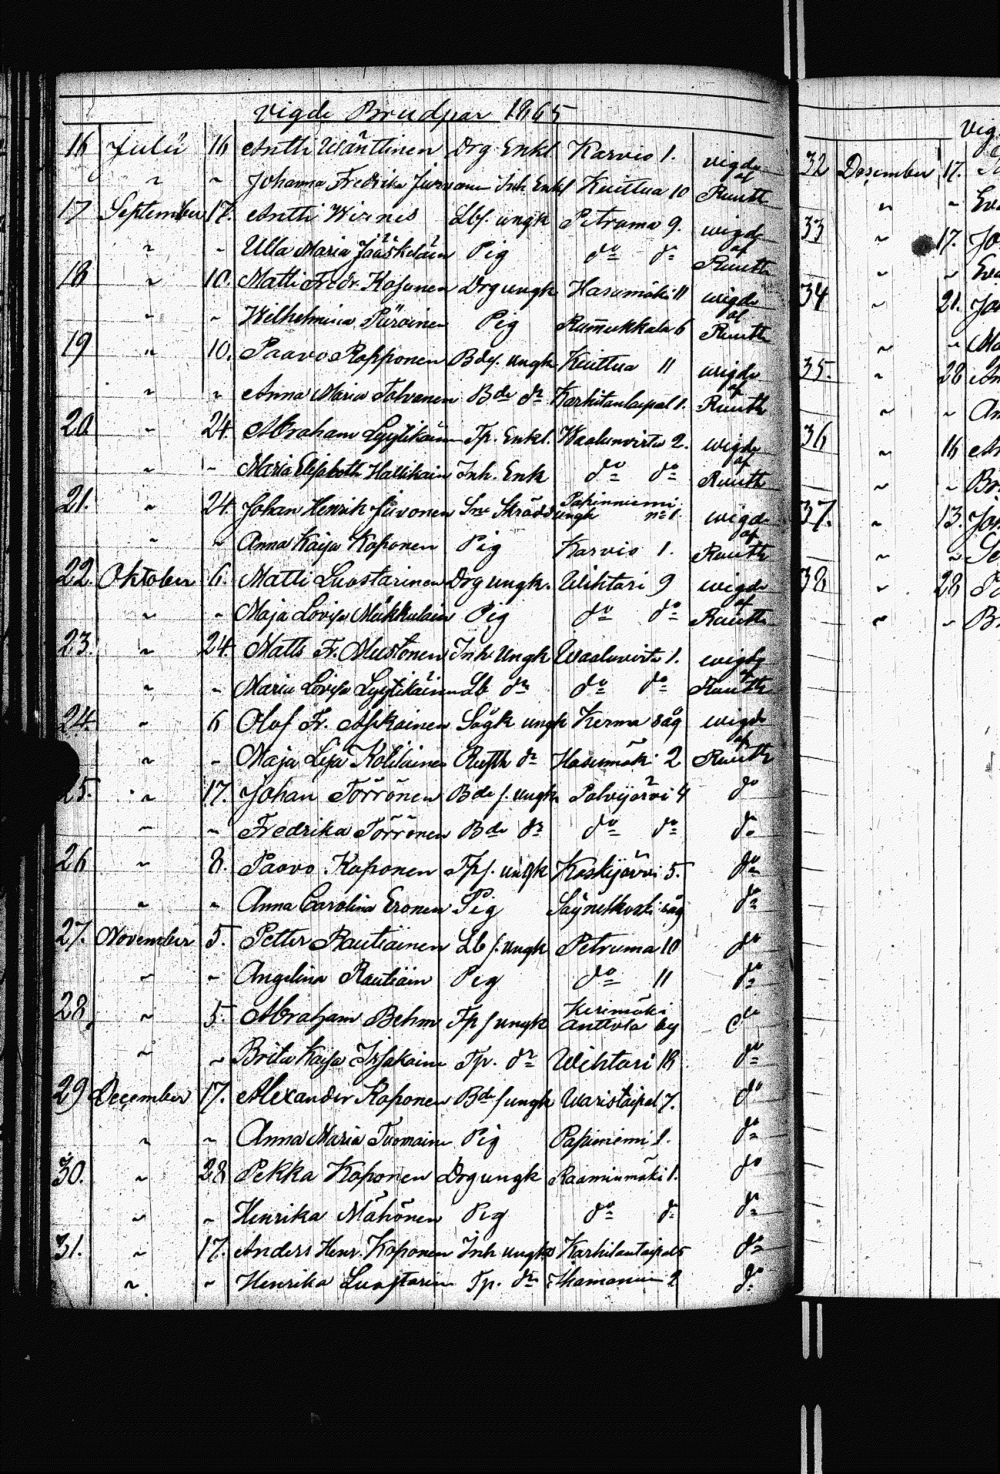 Vigde Brudpar 1865
16 Julii 16 Antti Wänttinen Drg Enkl Karvio 1. vigde af
" " Johanna Fredrika Inh. Enkl Kuittua 10 Ruuth
17 September 17. Antti Wirnes Lbs. ungk Petruma 9. wigde af
" " Ulla Maria Jääskeläin Pig do do Ruuth
18 " 10. Matti Fredr. Kosunen Drg ungk Hasumäki 11 wigde af
" " Wilhelmina Piiroinen Pig Rummukkala 6 Ruuth
19 " 10. Paavo Rapponen Bdes. ungk Kuittua 11 wigde af
" " Anna Maria Tolvanen Bde dr Karhilanlaipal 1. Ruuth
20 " 24. Abraham Lyytikäin Tp. Enkl. Waaluvirta 2. wigde af
" " Maria Elisabeth Hallikain Inh. Enk do do Ruuth
21. " 24. Johan Henrik Siivonen Skrädd ungk Papinniemi no 1 wigde af
" " Anna Kaisa Koponen Pig Karvio 1. Ruuth
22 Oktober 6. Matti Luostarinen Drg ungk. Wihtari 9 wigde af
" " Maja Lovisa Mükkulain Pig do do Ruuth
23. " 24. Matts Fr. Mustonen Inh Ungk Waaluvirta 1. wigde af
" " Maria Lovisa Lyytikäinen Lb dr do do Ruuth
24. " 6 Olof Fr. Asikainen Sågk ungk Kerma såg wigde af
" " Maja Lisa Kolilainen dr Hasumäki 2 Ruuth
25. " 17. Johan Törrönen Bde s. ungk Polvijärvi 4 do
" " Fredrika Törrönen Bde dr do do do
26 " 8. Paavo Koponen Tps. ungk Koskijärvi 5. do
" " Anna Carolina Eronen Pig Säyneikoski såg do
27. November 5. Petter Rautiainen Lb s. ungk Petruma 10 do
" " Angelina Rautiain Pig do 11 do
28. " 5. Abraham Behm Tp s ungk Kerimäki Anttola by do
" " Brita Kaisa Issakain Tp. dr Wihtari 18 do
29 December 17. Alexander Koponen Bde s ungk Waristaipal 7. do
" " Anna Maria Tuomain Pig Papinniemi 1. do
30. " 28 Pekka Koponen Drg ungk Raamiumäki 1. do
" " Henrika Mähönen Pig do do do
31. " 17. Anders Henr. Koponen Inh ungk Karhilantaipal 5 do
" " Henrika Luostarin Tp. dr 2 do
32 December 17.
33 " 17.
34 " 21.
35. " 28
36 " 16
37. " 13.
38 " 28